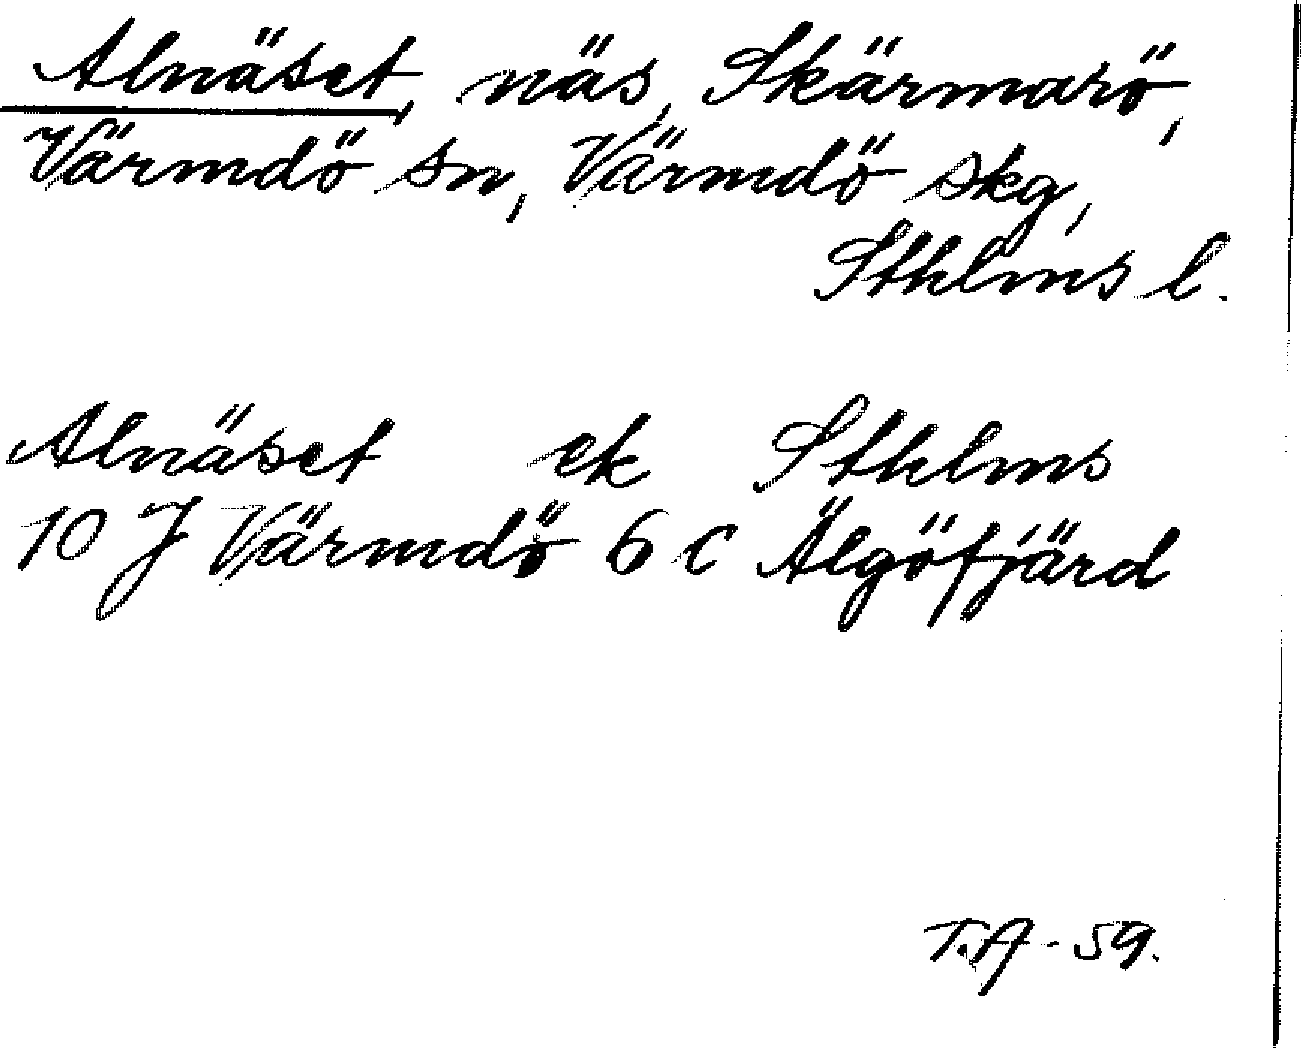 Alnäset, näs, Skärmarö,
Värmdö sn, Värmdö skg,
Sthlms l.
Alnäset ek Sthlms
10 J Värmdö 6 c Älgöfjärd
T.A - 59.